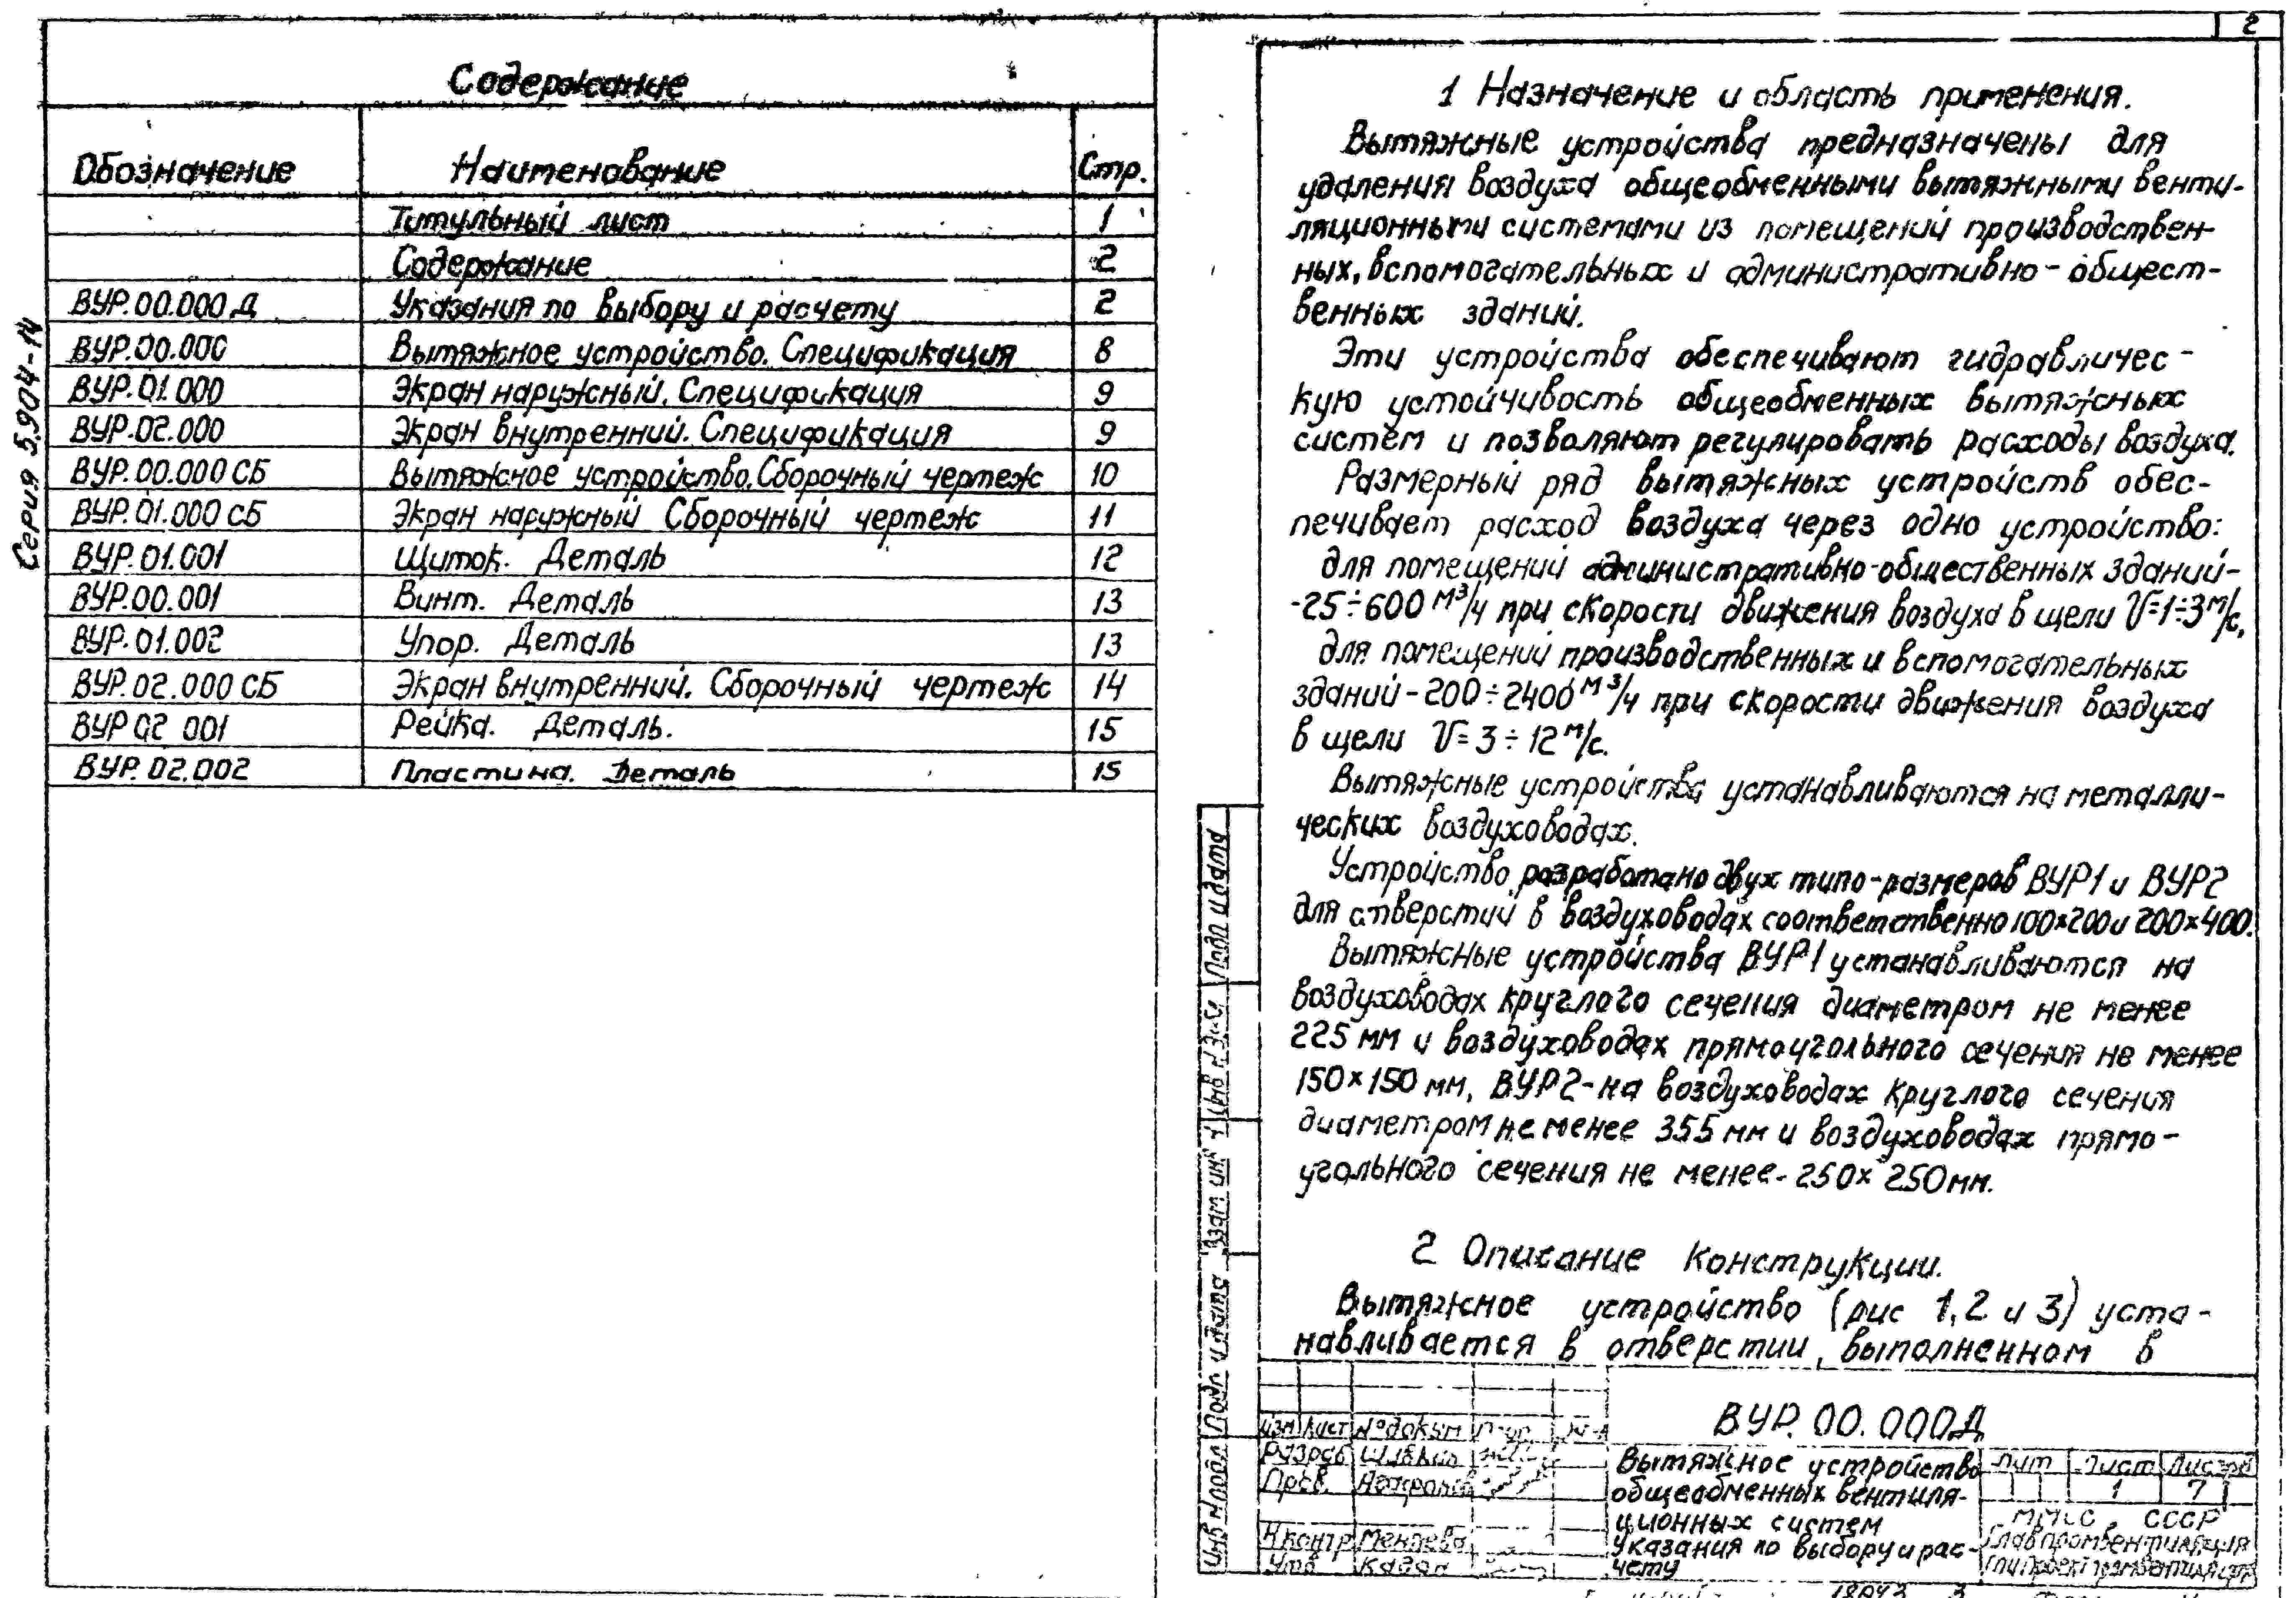 Серия 5.904-14
Содержание
Обозначение Наименование Стр.
Титульный лист 1
Содержание 2
ВУР.00.000 Д Указания по выбору и расчету 2
ВУР.00.000 Вытяжное устройство. Спецификация 8
ВУР.01.000 Экран наружный. Спецификация 9
ВУР.02.000 Экран внутренний. Спецификация 9
ВУР.00.000 СБ Вытяжное устройство. Сборочный чертеж 10
ВУР.01.000 СБ Экран наружный Сборочный чертеж 11
ВУР.01.001 Щиток. Деталь 12
ВУР.00.001 Винт. Деталь 13
ВУР.01.002 Упор. Деталь 13
ВУР.02.000 СБ Экран внутренний. Сборочный чертеж 14
ВУР 02 001 Рейка. Деталь. 15
ВУР.02.002 Пластина. Деталь 15
2
1 Назначение и область применения.
Вытяжные устройства предназначены для
удаления воздуха общеобменными вытяжными венти-
ляционными системами из помещений производствен-
ных, вспомогательных и административно-общест-
венных зданий.
Эти устройства обеспечивают гидравличес-
кую устойчивость общеобменных вытяжных
систем и позволяют регулировать расходы воздуха.
Размерный ряд вытяжных устройств обес-
печивает расход воздуха через одно устройство:
для помещений административно-общественных зданий-
-25÷600 м³/ч при скорости движения воздуха в щели V=1÷3 м/с,
для помещений производственных и вспомогательных
зданий-200÷2400 м³/ч при скорости движения воздуха
в щели V=3÷12 м/с.
Вытяжные устройства устанавливаются на металли-
ческих воздуховодах.
Устройство разработано двух типо-размеров ВУР1 и ВУР2
для отверстий в воздуховодах соответственно 100×200 и 200×400.
Вытяжные устройства ВУР1 устанавливаются на
воздуховодах круглого сечения диаметром не менее
225 мм и воздуховодах прямоугольного сечения не менее
150×150 мм, ВУР2-на воздуховодах круглого сечения
диаметром не менее 355 мм и воздуховодах прямо-
угольного сечения не менее-250×250мм.
2 Описание конструкции.
Вытяжное устройство (рис 1,2 и 3) уста-
навливается в отверстии, выполненном в
Инв № подл Подп и дата Взам инв Подп и дата
Изм Лист № докум
Разраб
Пров.
Н контр
Утв
ВУР.00.000Д
Вытяжное устройство
общеобменных вентиля-
ционных систем
Указания по выбору и рас-
чету
Лит Лист Листов
1 7
ММСС СССР
Главпромвентиляция